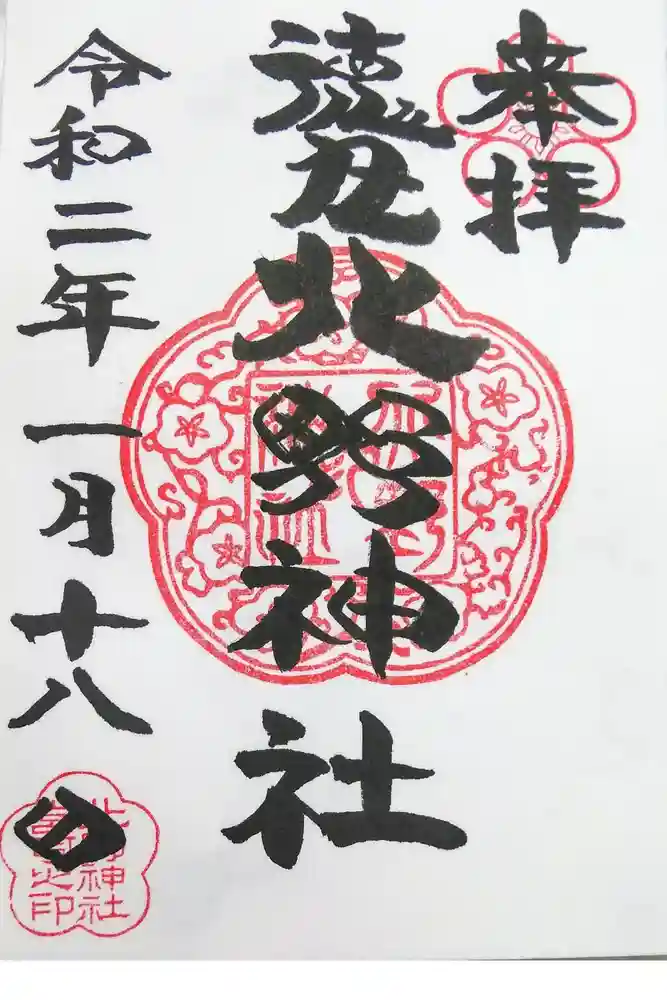 奉拝
徳丸北野神社
令和二年一月十八日
北野神社
宮司之印